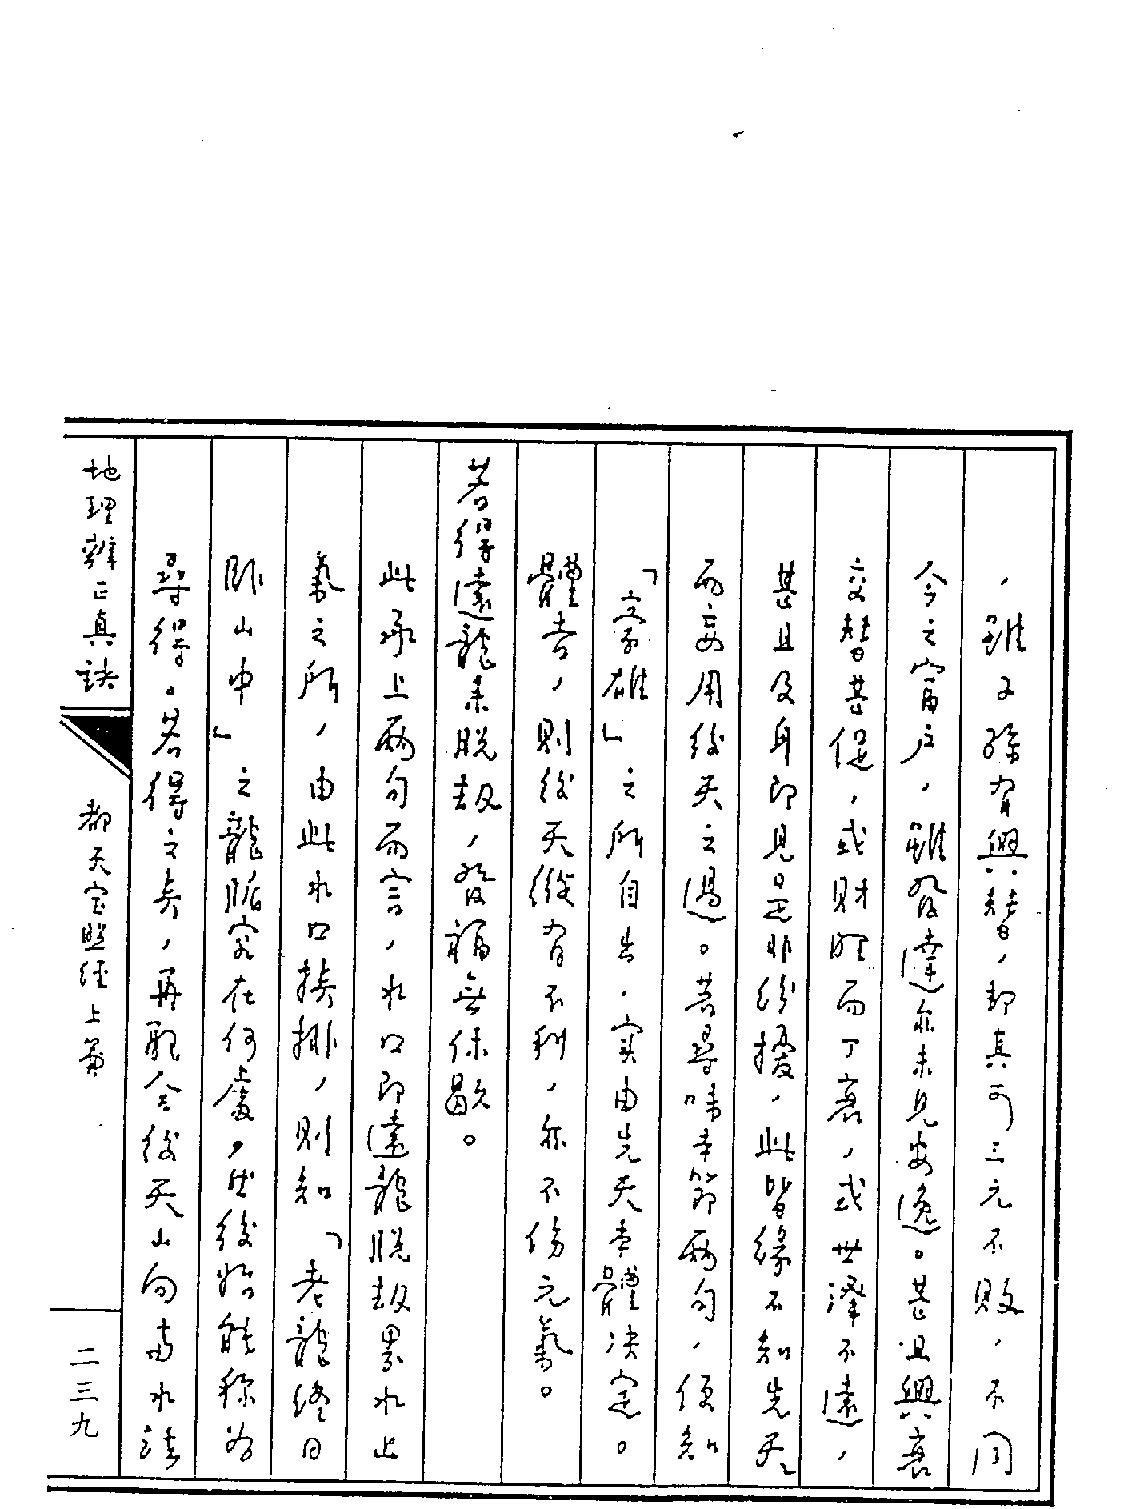 ，雖子孫有興替，却真可三元不敗，不同
今之富户，雖發達亦未見安逸。甚且興衰
交替甚促，或財旺而丁衰，或世澤不遠，
甚且及身即見是非紛擾，此皆緣不知先天
而妄用後天之過。若尋味本節兩句，便知
「家雄」之所自出，實由先天本體決定。
體吉，則後天縱有不利，亦不傷元氣。
若得遠龍來脱劫，發福無休歇。
此承上兩句而言，水口即遠龍脱劫界水止
氣之所，由此水口挨排，則知「老龍終日
卧山中」之龍脈究在何處，然後始能称為
尋得。若得之矣，再配合後天山向与水諸
地理辨正真訣
都天宝照經上篇
二三九